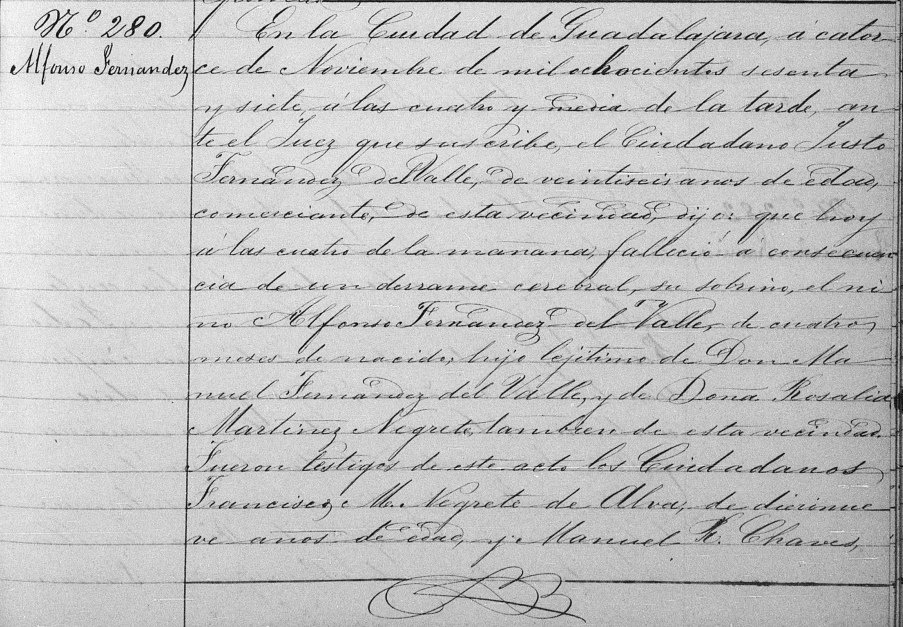 Nº 280.
Alfonso Fernandez
En la Ciudad de Guadalajara, á cator
ce de Noviembre de mil ochocientos sesenta
y siete, á las cuatro y media de la tarde, an
te el Juez que suscribe, el Ciudadano Justo
Fernández del Valle, de veintiseis anos de edad,
comerciante, de esta vecindad, dijo: que hoy
á las cuatro de la manana, falleció a consecuen
cia de un derrame cerebral, su sobrino, el ni
no Alfonso Fernández del Valle, de cuatro
meses de nacido, hijo lejitimo de Don Ma
nuel Fernández del Valle, y de Dona Rosalia
Martinez Negrete, tambien de esta vecindad.
Fueron testigos de este acto los Ciudadanos
Francisco M. Negrete de Alva, de diecinue
ve anos de edad, y Manuel R. Chaves,